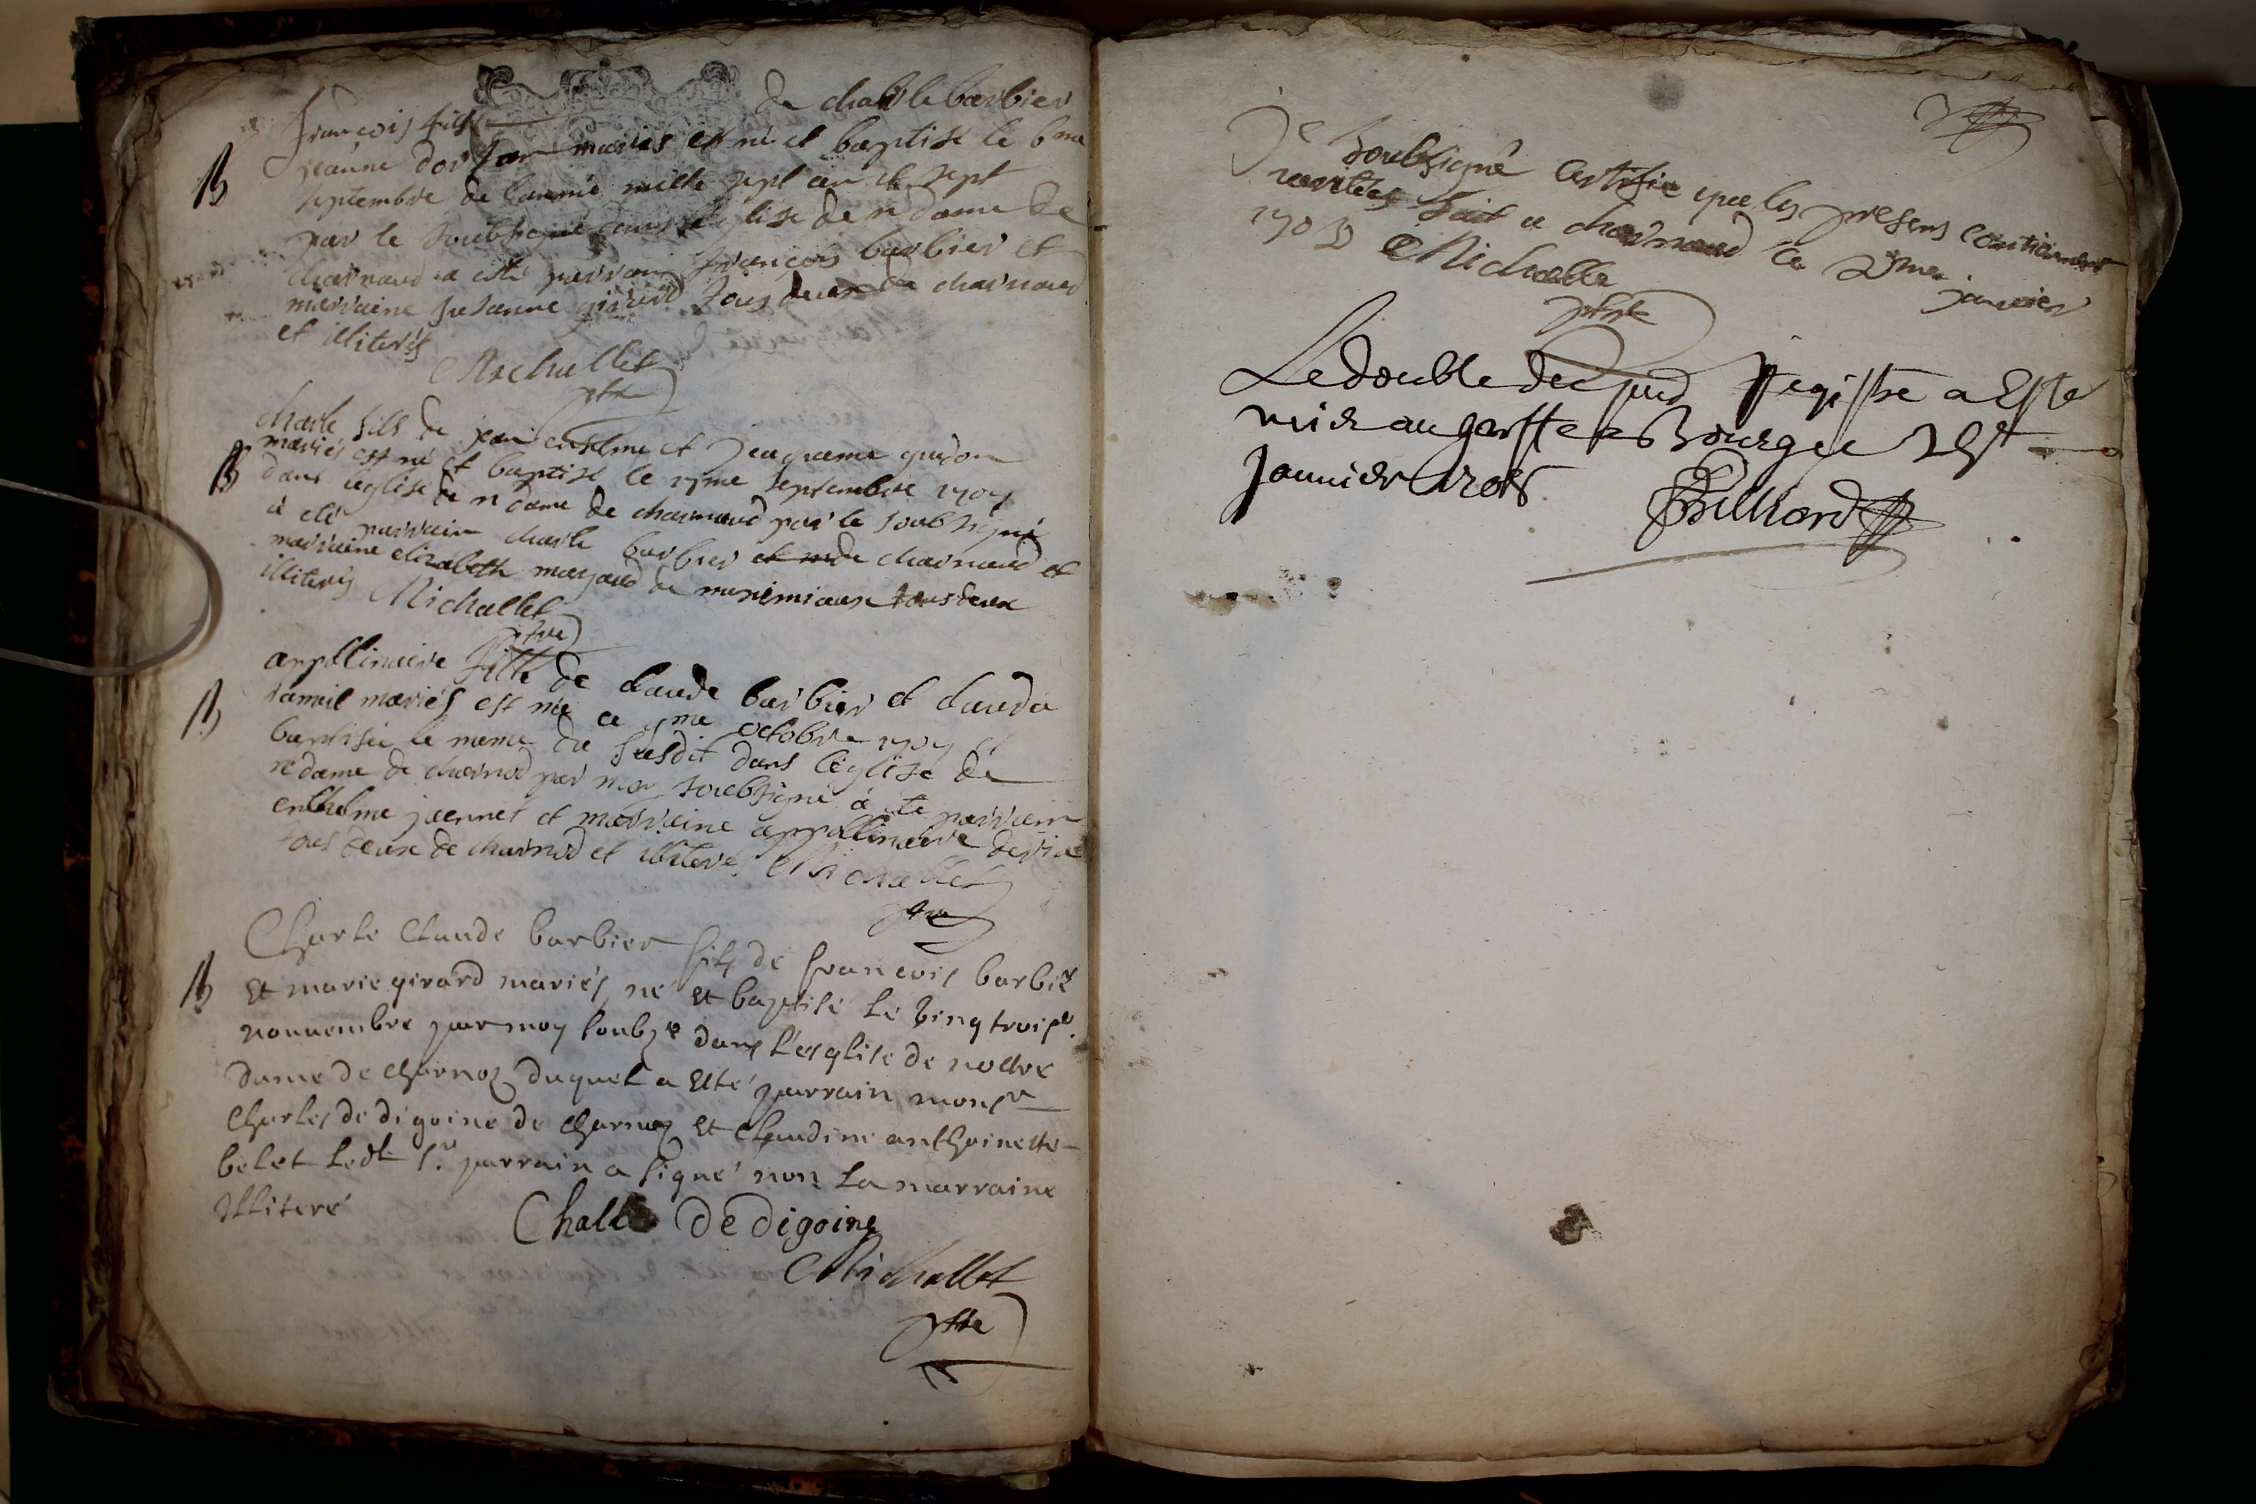 B
François fils de charle barbier
jeanne dorfan mariés est né et baptisé le 6me
septembre de lannée mille sept cen et sept
par le soubsigné dans léglise de n dame de
charnaud a été parrain françois barbier et
marraine susanne girard tous deux de charnaud
et illiterés
Michallet
ptre
B
charle fils de jean enselme et jaqueme guidon
mariés est né et baptisé le 17me septembre 1707
dans léglise de n dame de charnaud par le soubsigné
a été parrain charle barbier de charnaud et
marraine elizabeth de tous deux
illiterés Michallet
ptre
B
appollinaire fille de claude barbier et clauda
mariés est née ce me octobre 1707 et
baptisée le meme du susdit dans léglise de
n dame de charnod par moy soubsigné a été parrain
enthelme jannet et marraine appollinaire
tous deux de charnod et illiteré. Michallet
ptre
B
Charle Claude barbier fils de françois barbier
et marie girard mariés né et baptisé le vingtroise
nouuembre par moy soubzé dans l'esglise de nostre
dame de charnoz duquel a esté parrain monsr
Charles de digoine de charnoz et Claudine anthoinette
belet ledt sr parrain a signé non la marraine
illiteré
Challe De digoine
Michallet
ptre
Je soubsigné certifie que les presens contiennent
verités fait a charnaud ce 2me janvier
1708
Michalle
ptre
Le double du pnt Registre a Esté
mis au greffe a Bourg ce
Januier 1708
Billiard